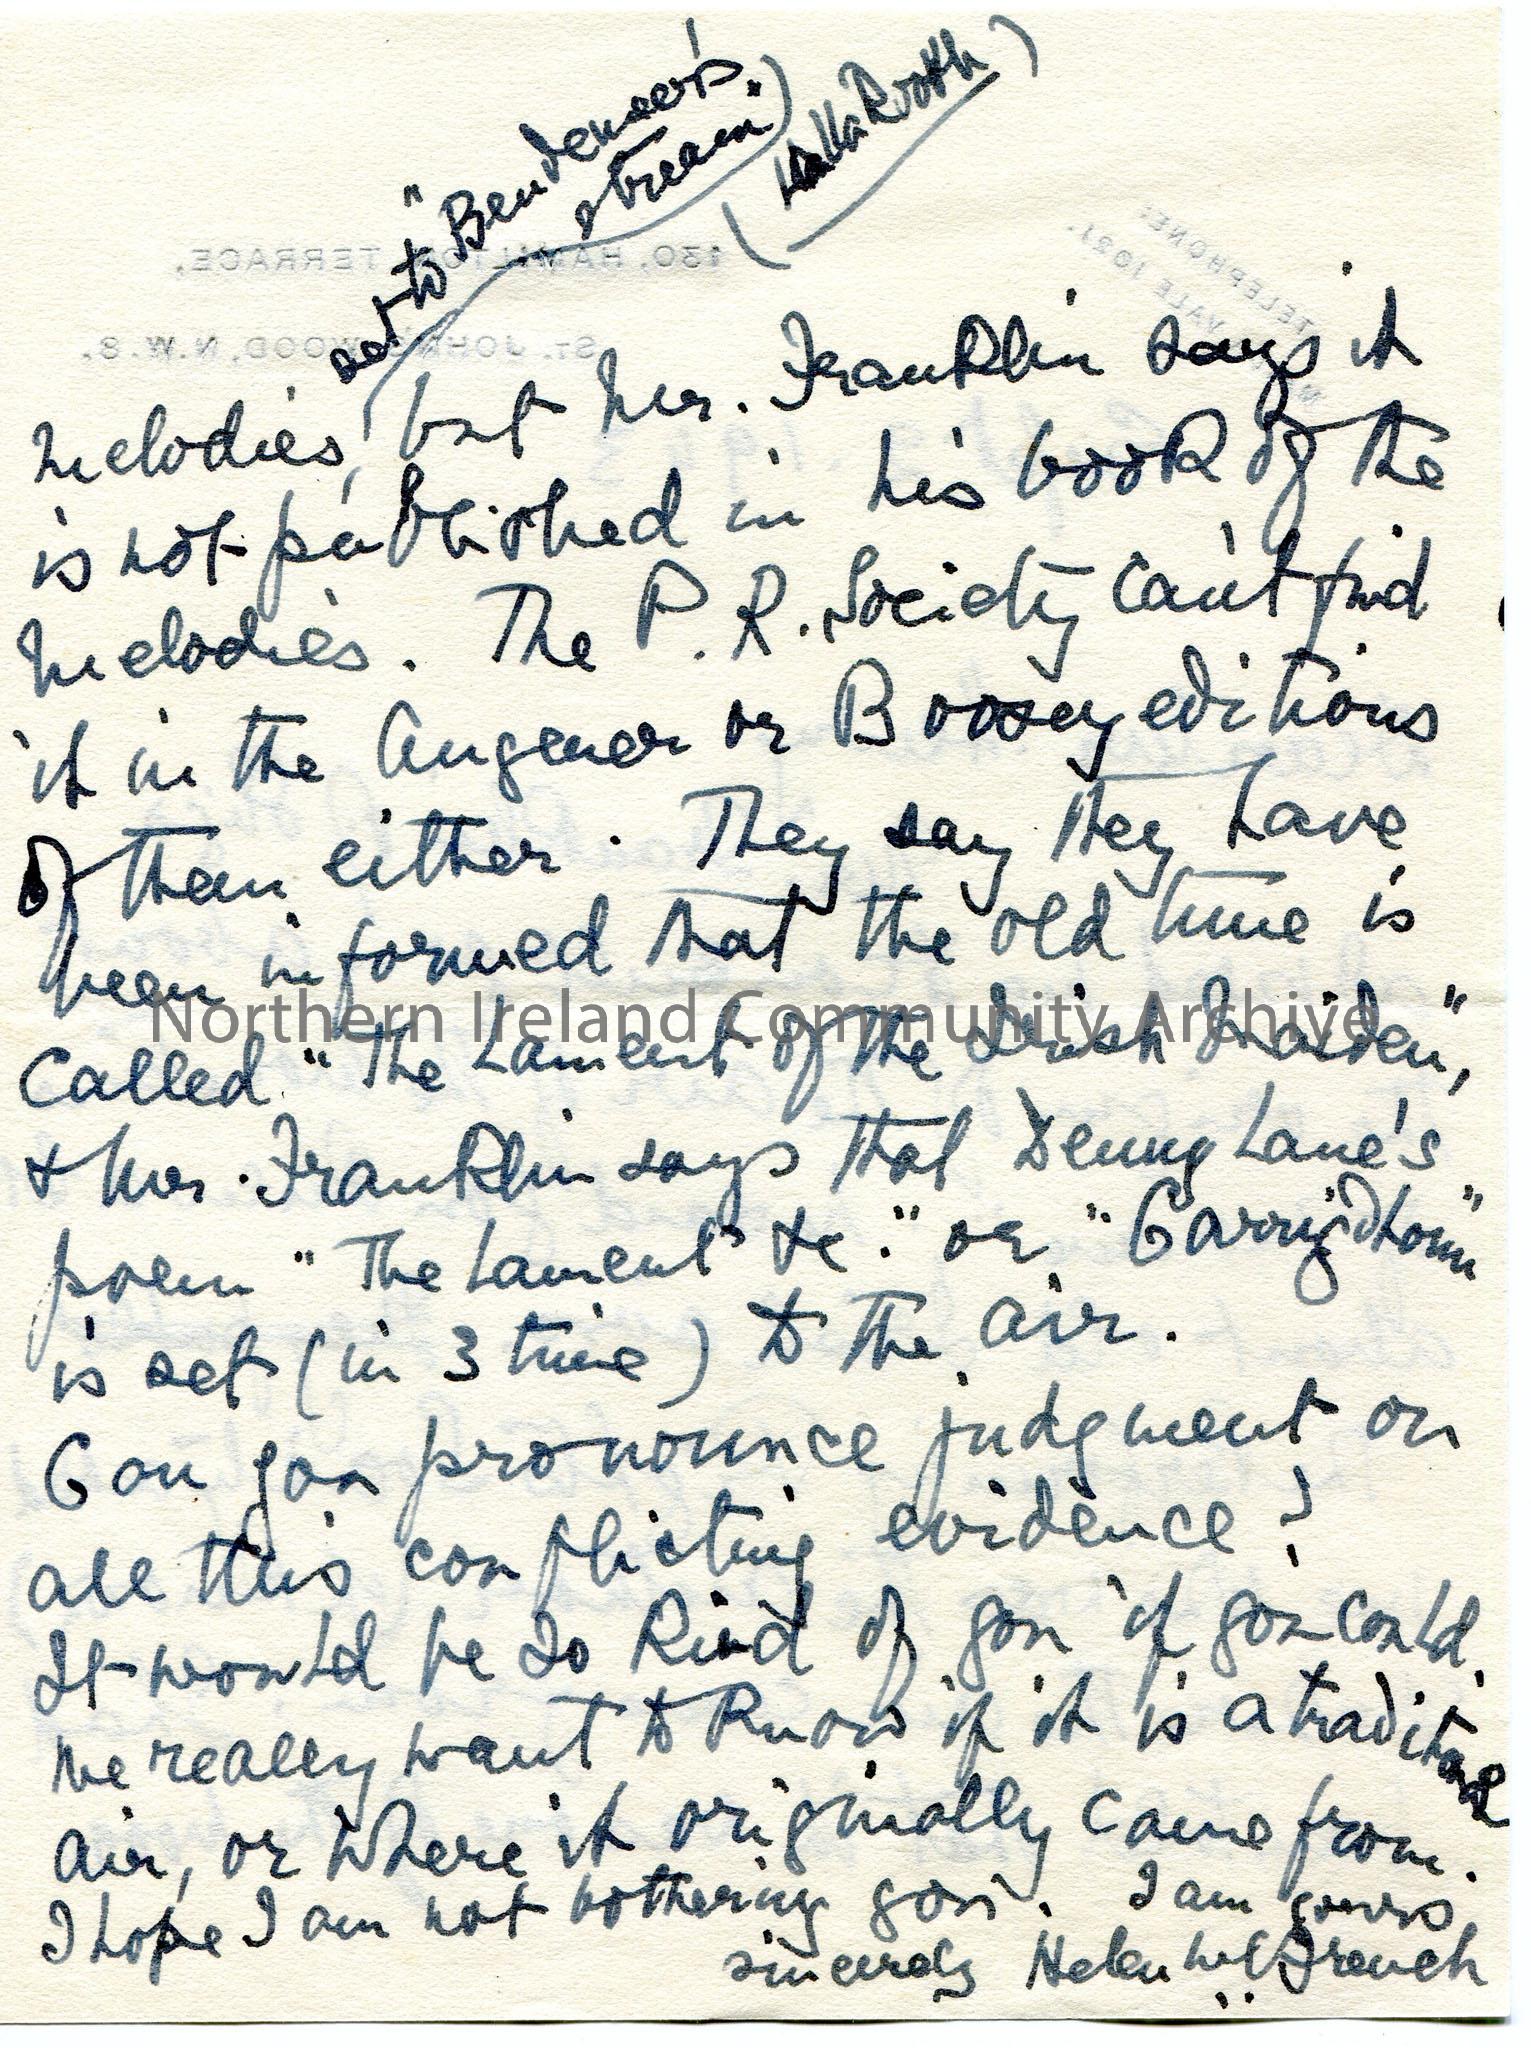 set to "Bendemeer's
stream."
(Lalla Rookh)
130, HAMILTON TERRACE,
ST. JOHN'S WOOD, N.W.8.
TELEPHONE:
VALE 1021.
Melodies, but Mr. Franklin says it
is not published in his book of the
Melodies. The P.R. Society can't find
it in the Augener or Boosey editions
of them either. They say they have
been informed that the old tune is
called "The Lament of the Irish Maiden",
& Mr. Franklin says that Denny Lane's
poem "The Lament &c." or "Carrigdhoun"
is set (in 3 time) to the air.
Can you pronounce judgment on
all this conflicting evidence?
It would be so kind of you if you could.
We really want to know if it is a traditional
air, or where it originally came from.
I hope I am not bothering you. I am yours
sincerely Helen French
Northern Ireland Community Archive